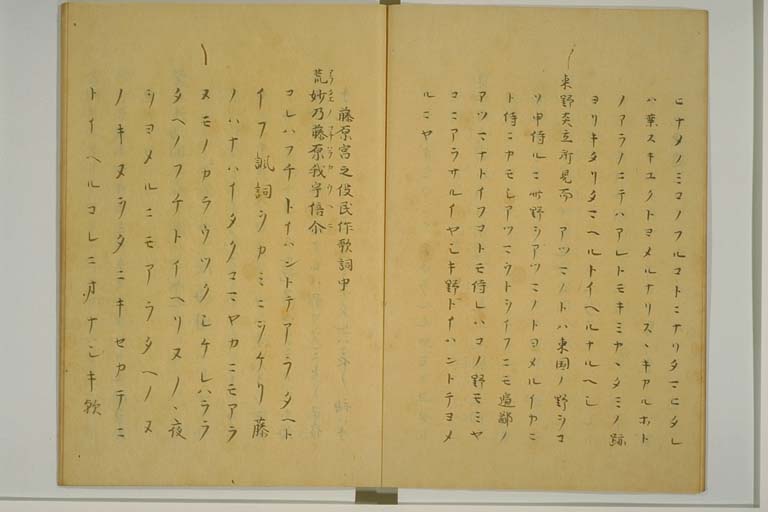 ヒナメノミコノフルコトニナリタマヒタレ
ハ葉スキユクトヨメルナリスヽキアルホト
ノアラノニテハアレトモキミカヽタミノ跡
ヨリキタリタマヘルトイヘルナルヘシ
東野炎立所見而 アツマノトハ東国ノ野シコ
ソ申侍ルニ此野シアツマノトヨメルイカニ
ト侍ニカモシアツマウトシイフニモ邊鄙ノ
アツマナトイフコトモ侍レハコノ野モミヤ
コニアラサルイヤシキ野トイハントテヨメ
ルニヤ
藤原宮之役民作歌詞中
荒妙乃藤原我宇倍介
コレハフチトイハントテアラタヘト
イフ諷詞シカミニシケリ藤
ノハナハイタクコマヤカニモアラ
ヌモノカラウツクシケレハララ
タヘノフチトイヘリヌノヽ夜
シヨメルニモアラタヘノヌ
ノキヌシタニキセカテニ
トイヘルコレニオナシキ歟